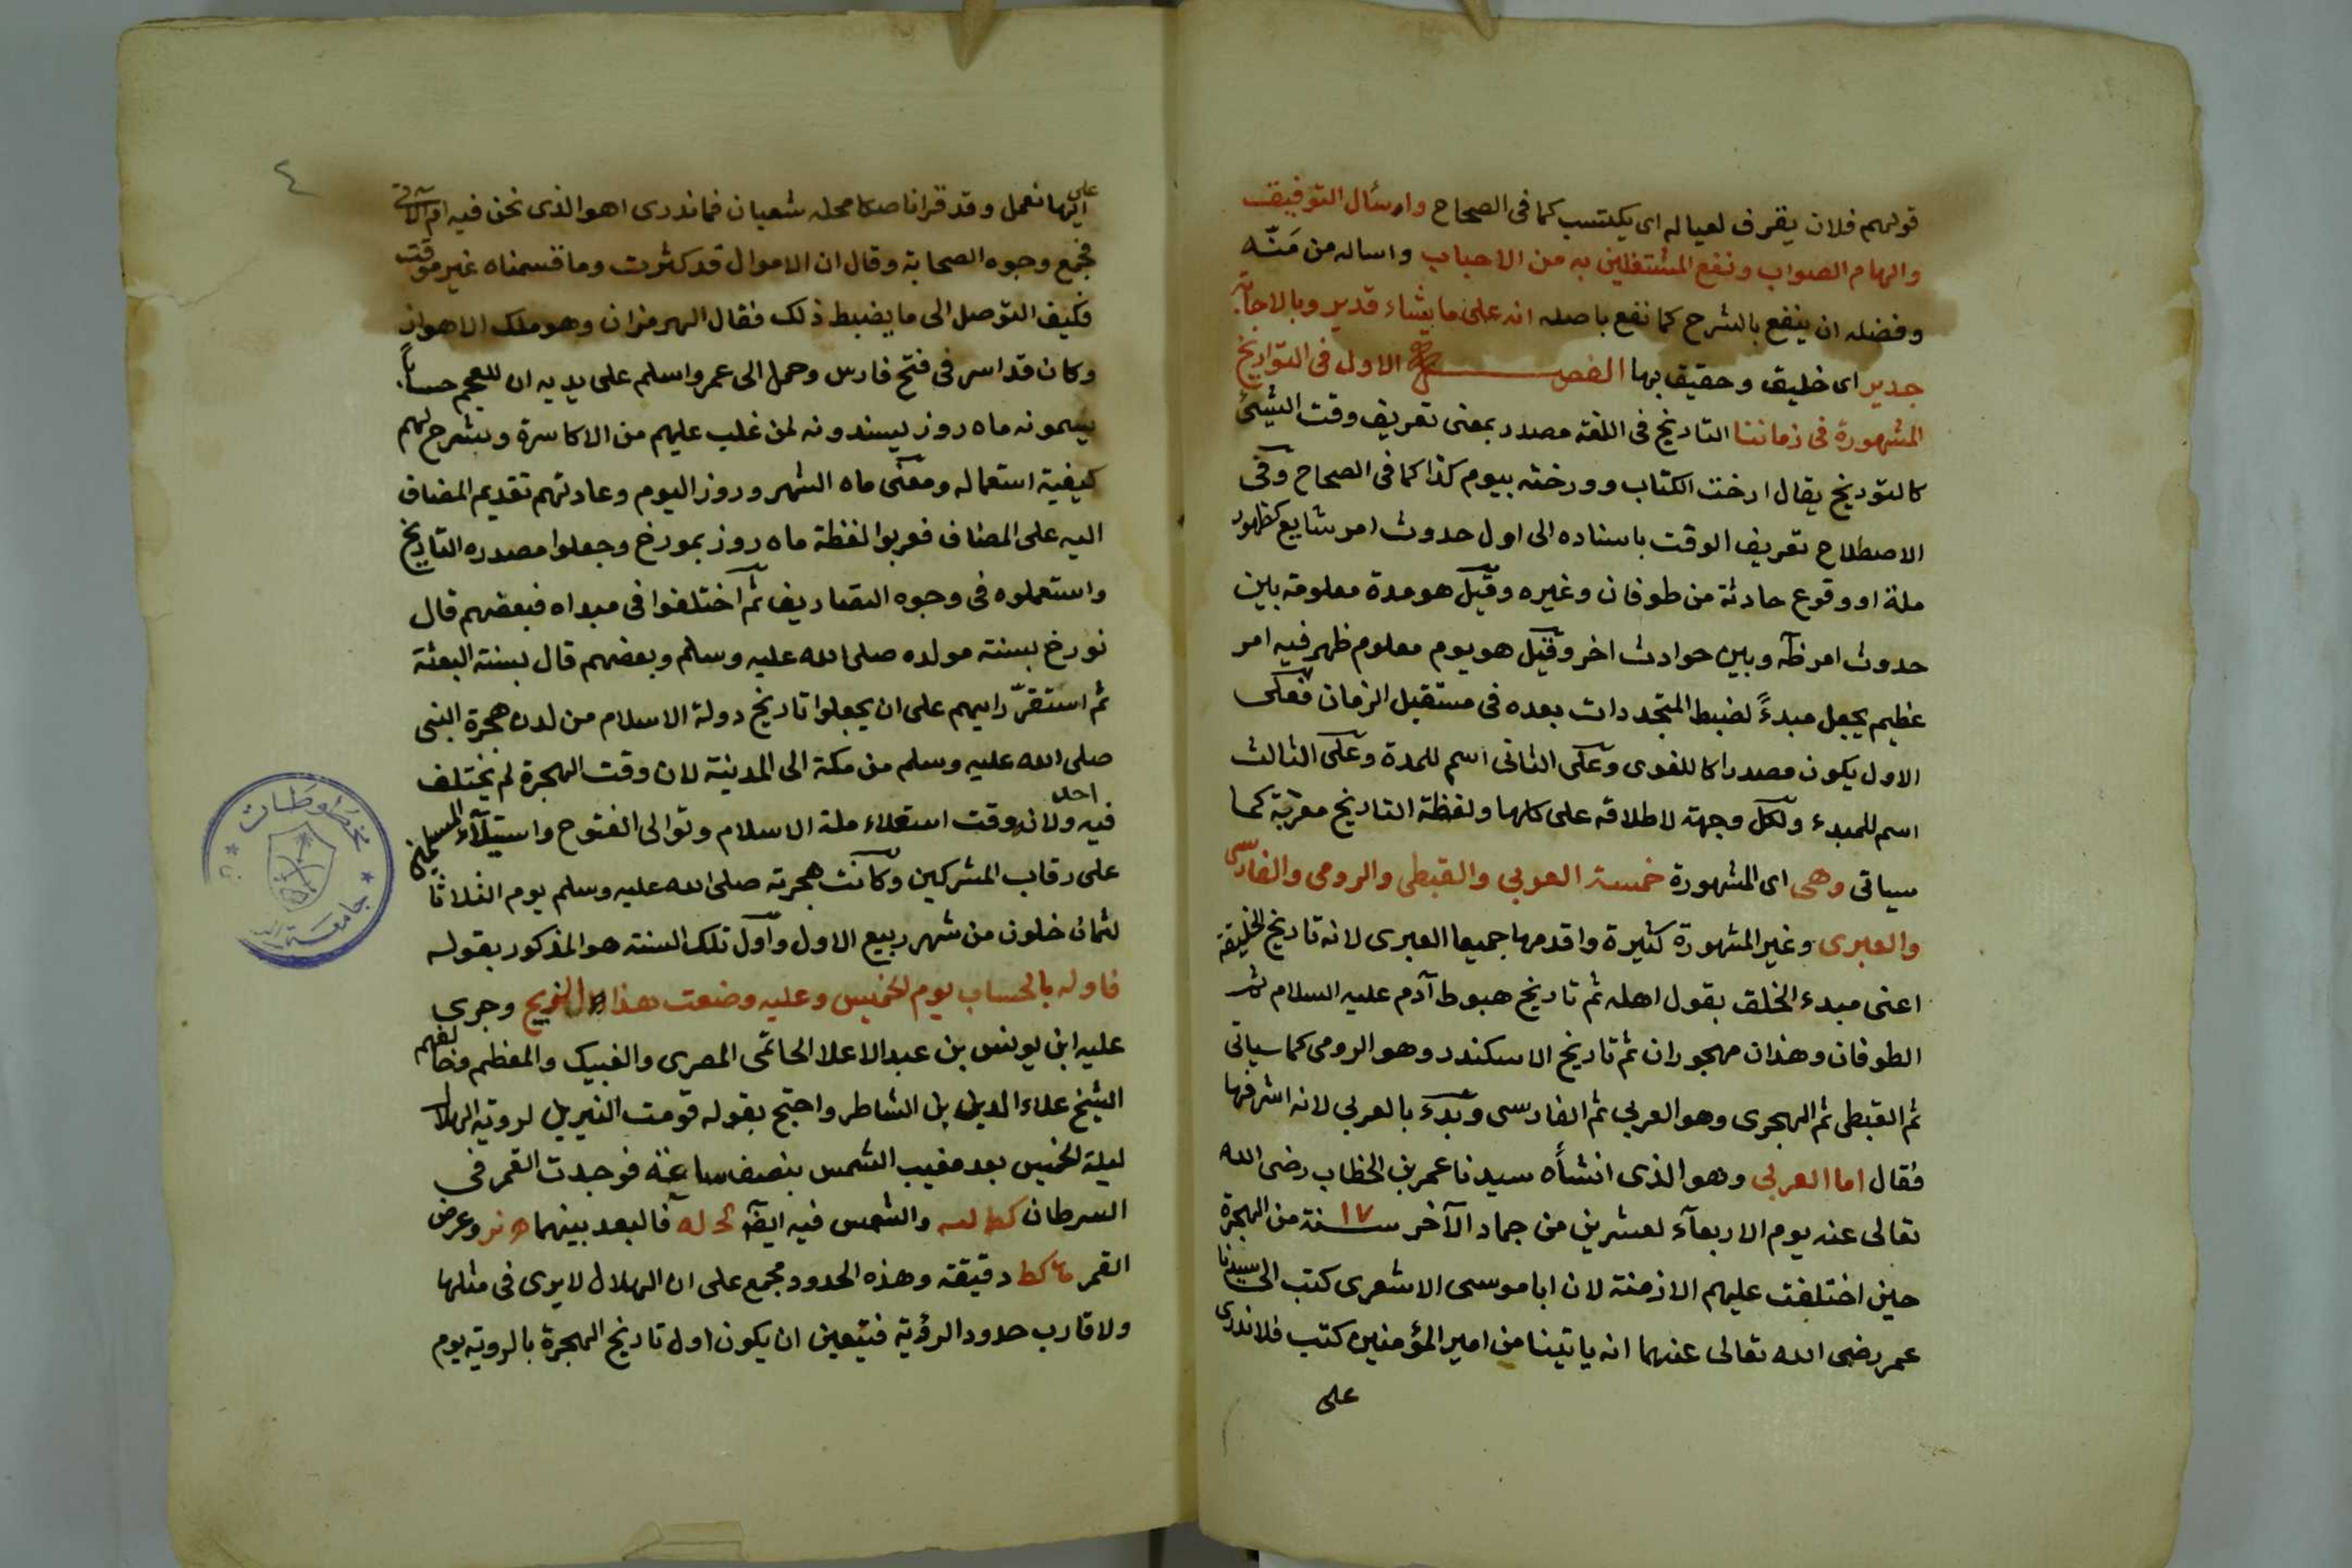 قولهم فلان يقرف لعياله اى يكتسب كما فى الصحاح واسئال التوفيق
والهام الصواب ونفع المشتغلين به من الاحباب واساله من مَنّه
وفضله ان ينفع بالشرح كما نفع باصله انه على ما يشاء قدير وبالاجابة
جدير اى خليق وحقيق بها الفصل الاول فى التواريخ
المشهورة فى زماننا التاريخ فى اللغة مصدر بمعنى تعريف وقت الشيئ
كالتوريخ يقال ارخت الكتاب وورخته بيوم كذا كما فى الصحاح وفى
الاصطلاح تعريف الوقت باسناده الى اول حدوث امر شايع كظهور
ملة او وقوع حادثة من طوفان وغيره وقيل هو مدة معلومة بين
حدوث امر ظ وبين حوادث اخر وقيل هو يوم معلوم ظهر فيه امر
عظيم يجعل مبدءً لضبط المتجددات بعده فى مستقبل الزمان فعلى
الاول يكون مصدرا كاللغوى وعلى الثانى اسم للمدة وعلى الثالث
اسم للمبدء ولكل وجهة لاطلاقه على كلها ولفظة التاريخ معربة كما
سياتى وهى اى المشهورة خمسة العربي والقبطى والرومى والفارسى
والعبرى وغير المشهورة كثيرة واقدمها جميعا العبرى لانه تاريخ الخليقة
اعنى مبدء الخلق بقول اهله ثم تاريخ هبوط آدم عليه السلام ثم
الطوفان وهذان مهجوران ثم تاريخ الاسكندر وهو الرومى كما سياتى
ثم القبطى ثم الهجرى وهو العربى ثم الفارسى وبدء بالعربى لانه اشرفها
فقال اما العربى وهو الذى انشأه سيدنا عمر بن الخطاب رضى الله
تعالى عنه يوم الاربعآء لعشرين من جماد الآخر سنة ١٧ من الهجرة
حين اختلفت عليهم الازمنة لان ابا موسى الاشعرى كتب الى سيدنا
عمر رضى الله تعالى عنهما انه ياتينا من امير المؤمنين كتب فلا ندرى
على
٤
على
ايها نعمل وقد قرانا صكا محله شعبان فماندرى اهو الذى نحن فيه ام الآتى
فجمع وجوه الصحابة وقال ان الاموال قد كثرت وما قسمناه غير موقت
فكيف التوصل الى ما يضبط ذلك فقال الهرمزان وهو ملك الاهواز
وكان قد اسر فى فتح فارس وحمل الى عمر واسلم على يديه ان للعجم حساباً
يسمونه ماه روز يسندونه لمن غلب عليهم من الاكاسرة وشرح لهم
كيفية استعماله ومعنى ماه الشهر وروز اليوم وعادتهم تقديم المضاف
اليه على المضاف فعربوا لفظة ماه روز بمورخ وجعلوا مصدره التاريخ
واستعملوه فى وجوه التصاريف ثم اختلفوا فى مبداه فبعضهم قال
نورخ بسنة مولده صلى الله عليه وسلم وبعضهم قال بسنة البعثة
ثم استقرّ رايهم على ان يجعلوا تاريخ دولة الاسلام من لدن هجرة النبى
صلى الله عليه وسلم من مكة الى المدينة لان وقت الهجرة لم يختلف
فيه احد ولانه وقت استعلاء ملة الاسلام وتوالى الفتوح واستيلآء المسلمين
على رقاب المشركين وكانت هجرته صلى الله عليه وسلم يوم الثلاثا
لثمان خلون من شهر ربيع الاول واول تلك السنة هو المذكور بقوله
فاوله بالحساب يوم الخميس وعليه وضعت هذا الزيج وجرى
عليه ابن يونس بن عبد الاعلا الحاتمى المصرى والغبيك والمعظم وخالفهم
الشيخ علاء الدين بن الشاطر واحتج بقوله قومت النيرين لروية الهلال
ليلة الخميس بعد مغيب الشمس بنصف ساعة فوجدت القمر فى
السرطان كط لسه والشمس فيه ايضا فالبعد بينهما وعرض
القمر كط دقيقة وهذه الحدود مجمع على ان الهلال لايرى فى مثلها
ولا قارب حدود الرؤية فيتعين ان يكون اول تاريخ الهجرة بالروية يوم
مخطوطات
جامعة